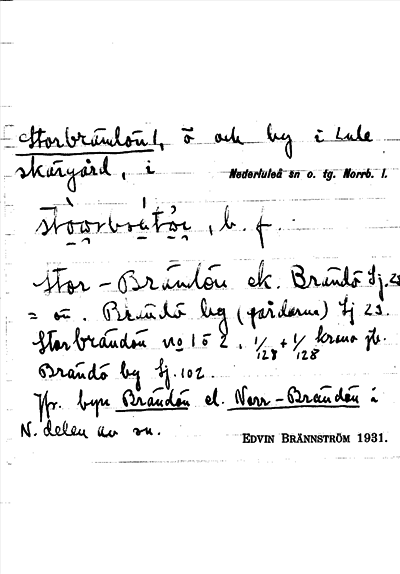 Storbrändön 1, ö och by i Lule
skärgård, i Nederluleå sn o. tg. Norrb. l.
b. f.
Stor-Brändön ek. Brändö Sj. 23
= ön. Brändö by (gårdarna) Sj 23.
Storbrändön no 1 o 2. 1/128 + 1/128 krono jb.
Brändö by Sj. 102.
Jfr. byn Brändön el. Norr-Brändön i
N. delen av sn.
EDVIN BRÄNNSTRÖM 1931.